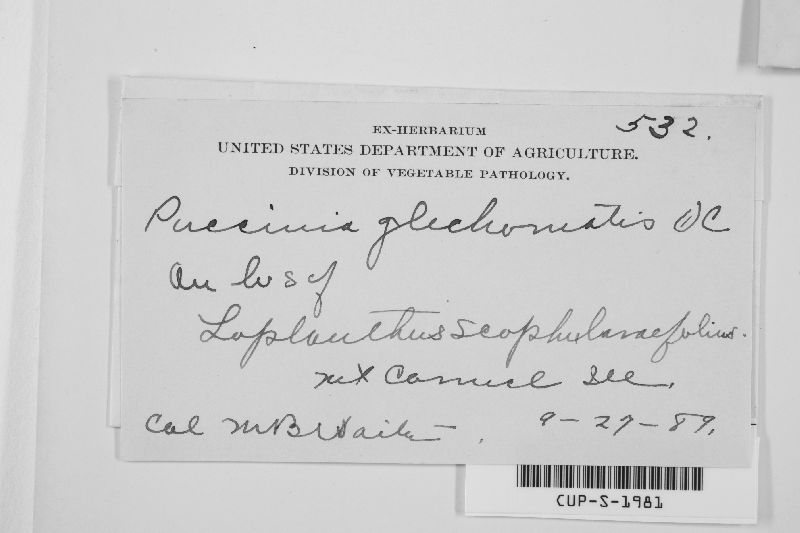 532.
EX-HERBARIUM
UNITED STATES DEPARTMENT OF AGRICULTURE.
DIVISION OF VEGETABLE PATHOLOGY.
Puccinia glechomatis DC
On lvs of
Lophanthus scrophulariaefolius.
Mt Carmel Ill.
Col M B Waite. 9-27-89.
CUP-S-1981